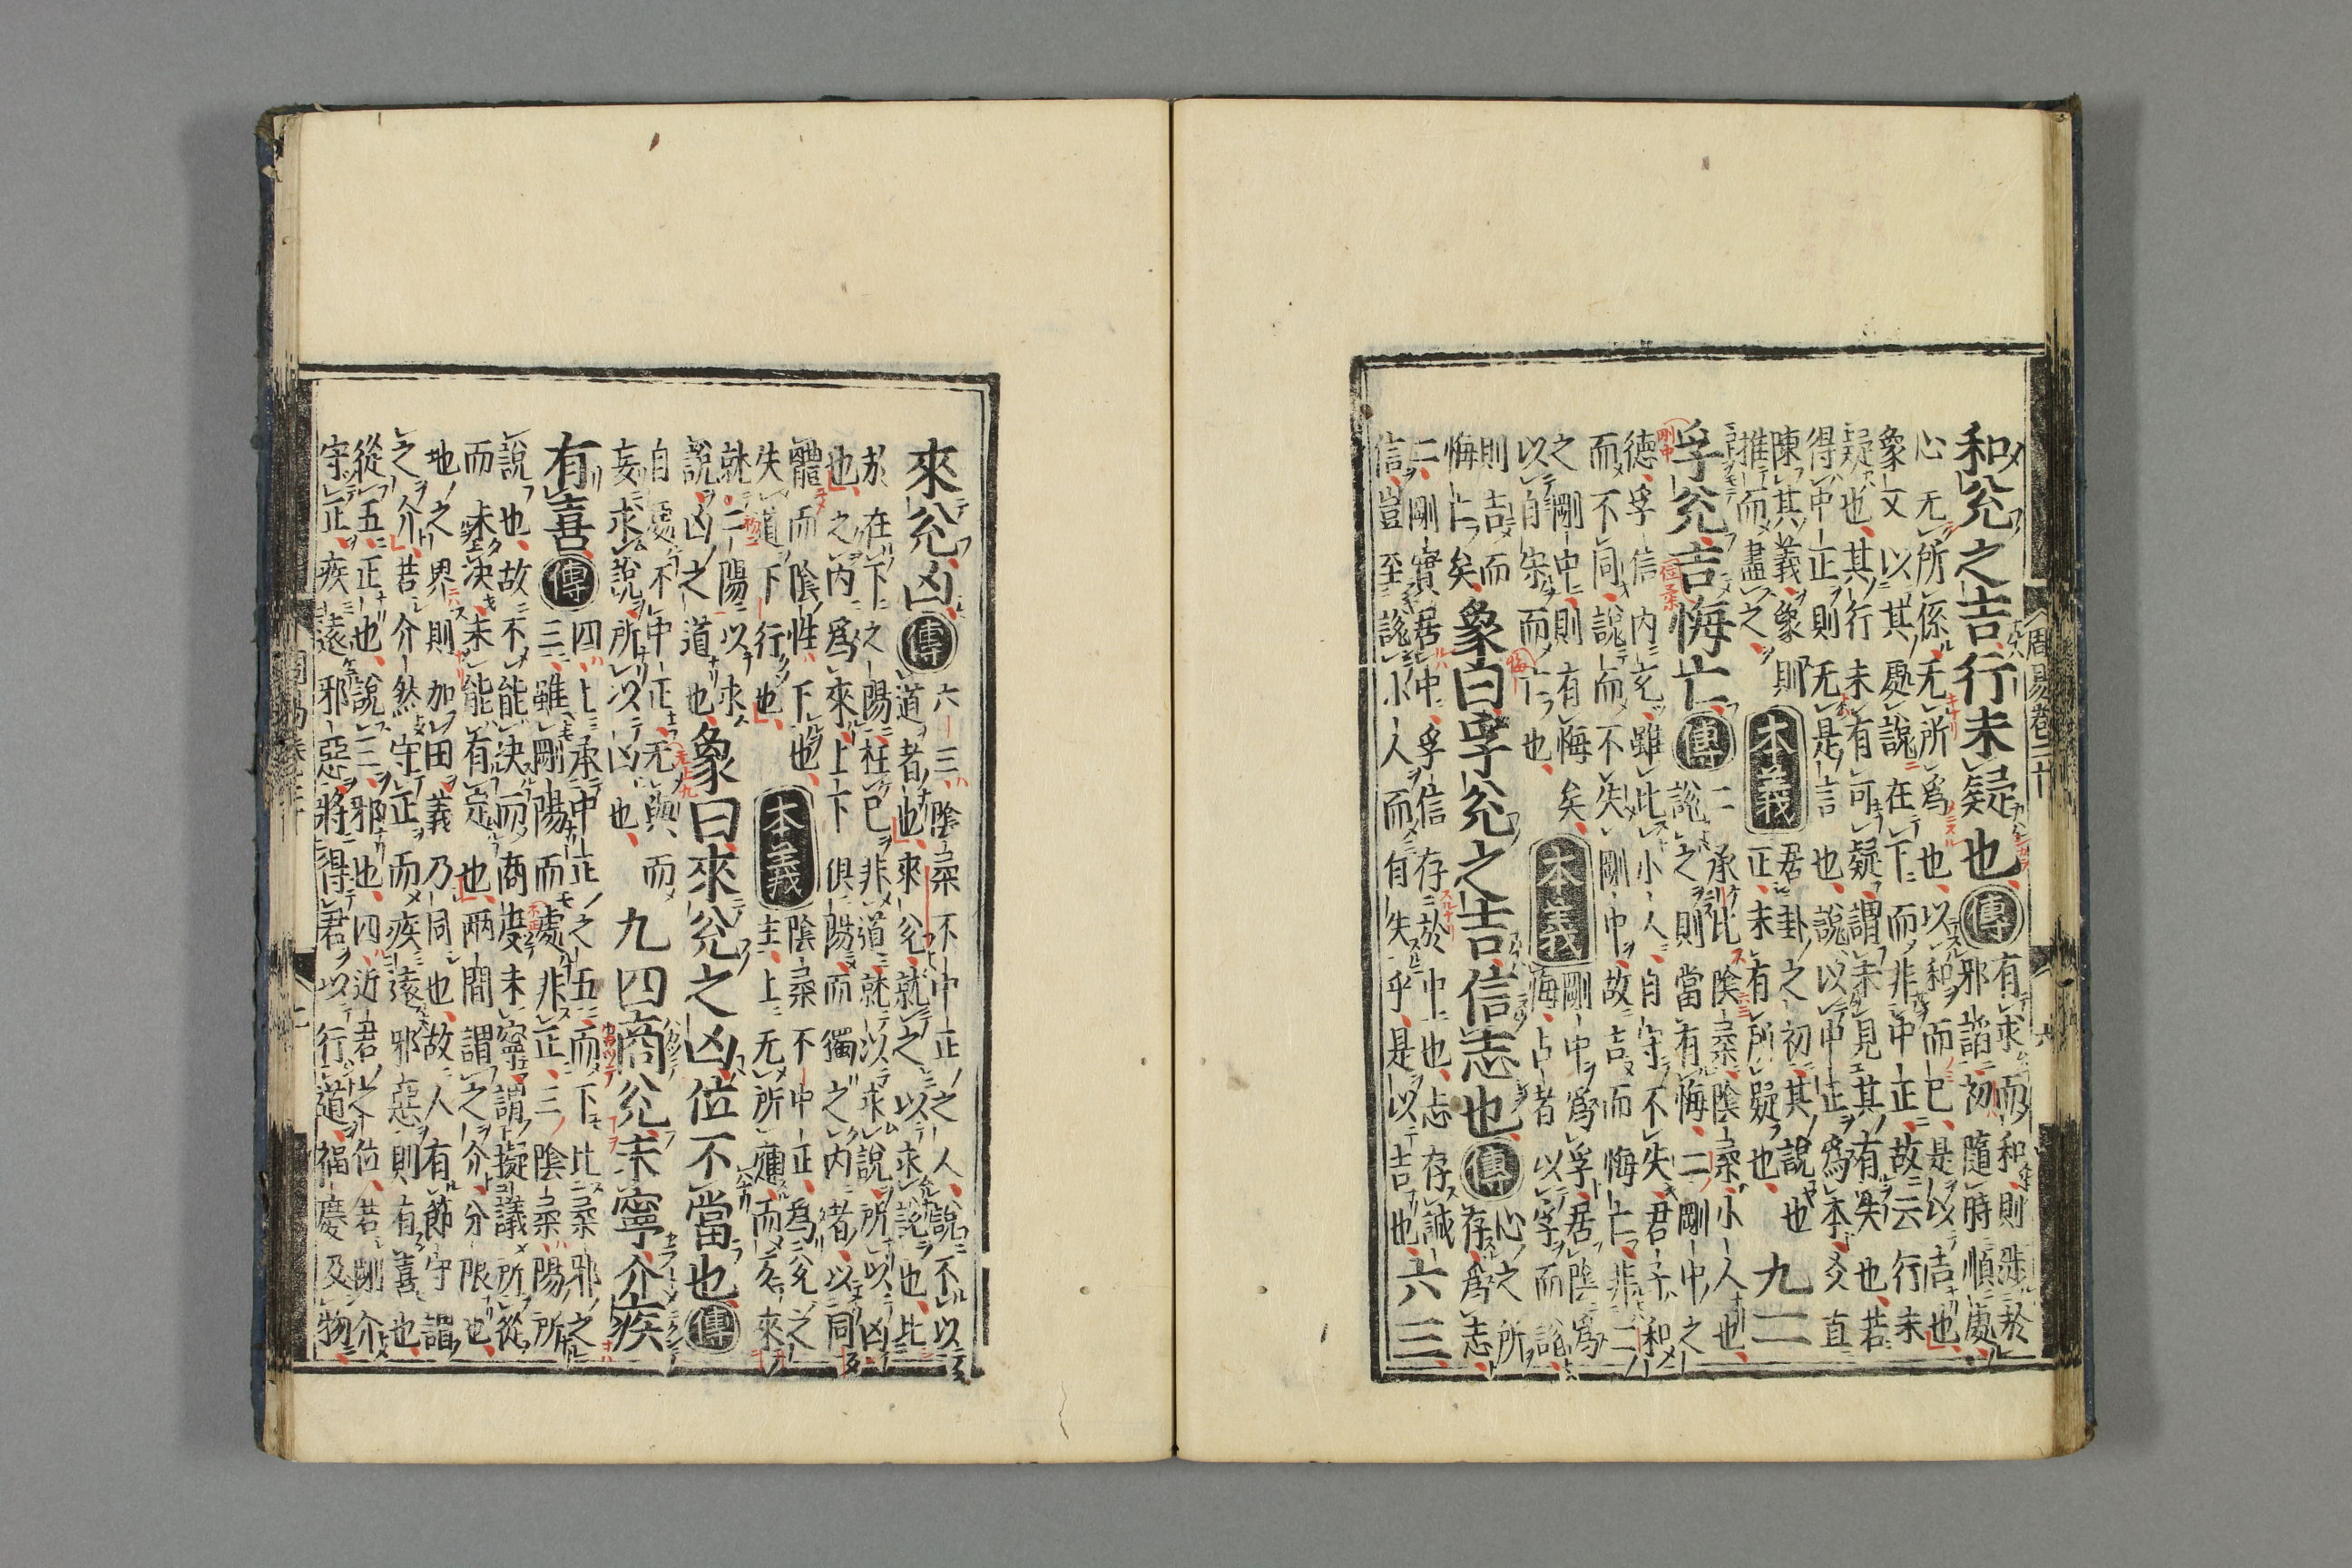 周易卷二十
和兌之吉行未疑也
傳
有求而和則涉於
邪諂初隨時順處
心无所係无所爲也以和而已是以吉也
象又以其處說在下而非中正故云行未
疑也其行未有可疑謂未見其有失也若
得中正則无是言也說以中正爲本爻直
陳其義象則
推而盡之
本義
居卦之初其說也
正未有所疑也
九二
孚兌吉悔亡
傳
二承比陰柔陰柔小人也
說之則當有悔二剛中之
德孚信內充雖比小人自守不失君子和
而不同說而不失剛中故吉而悔亡非二
之剛中則有悔矣
以自守而亡也
本義
剛中爲孚居陰爲
悔占者以孚而說
則吉而
悔亡矣
象曰孚兌之吉信志也
傳
心之所
存爲志
二剛實居中孚信存於中也志存誠
信豈至說小人而有失乎是以吉也
六三
來兌凶
傳
六三陰柔不中正之人說不以
道者也來兌就之以求說也比
於在下之陽枉己非道就以求說所以凶
也之內爲來上下俱陽而獨之內者以同
體而陰性下也
失道下行也
本義
陰柔不中正爲兌之
主上无所應而反來
就二陽以求
說凶之道也
象曰來兌之凶位不當也
傳
自處不中正无與而
妄求說所以凶也
九四商兌未寧介疾
有喜
傳
四上承中正之五而下比柔邪之
三雖剛陽而處非正三陰柔陽所
說也故不能決而商度未寧謂擬議所從
而未決未能有定也兩間謂之介分限也
地之界則加田義乃同也故人有節守謂
之介若介然守正而疾遠邪惡則有喜也
從五正也說三邪也四近君之位若剛介
守正疾遠邪惡將得君以行道福慶及物